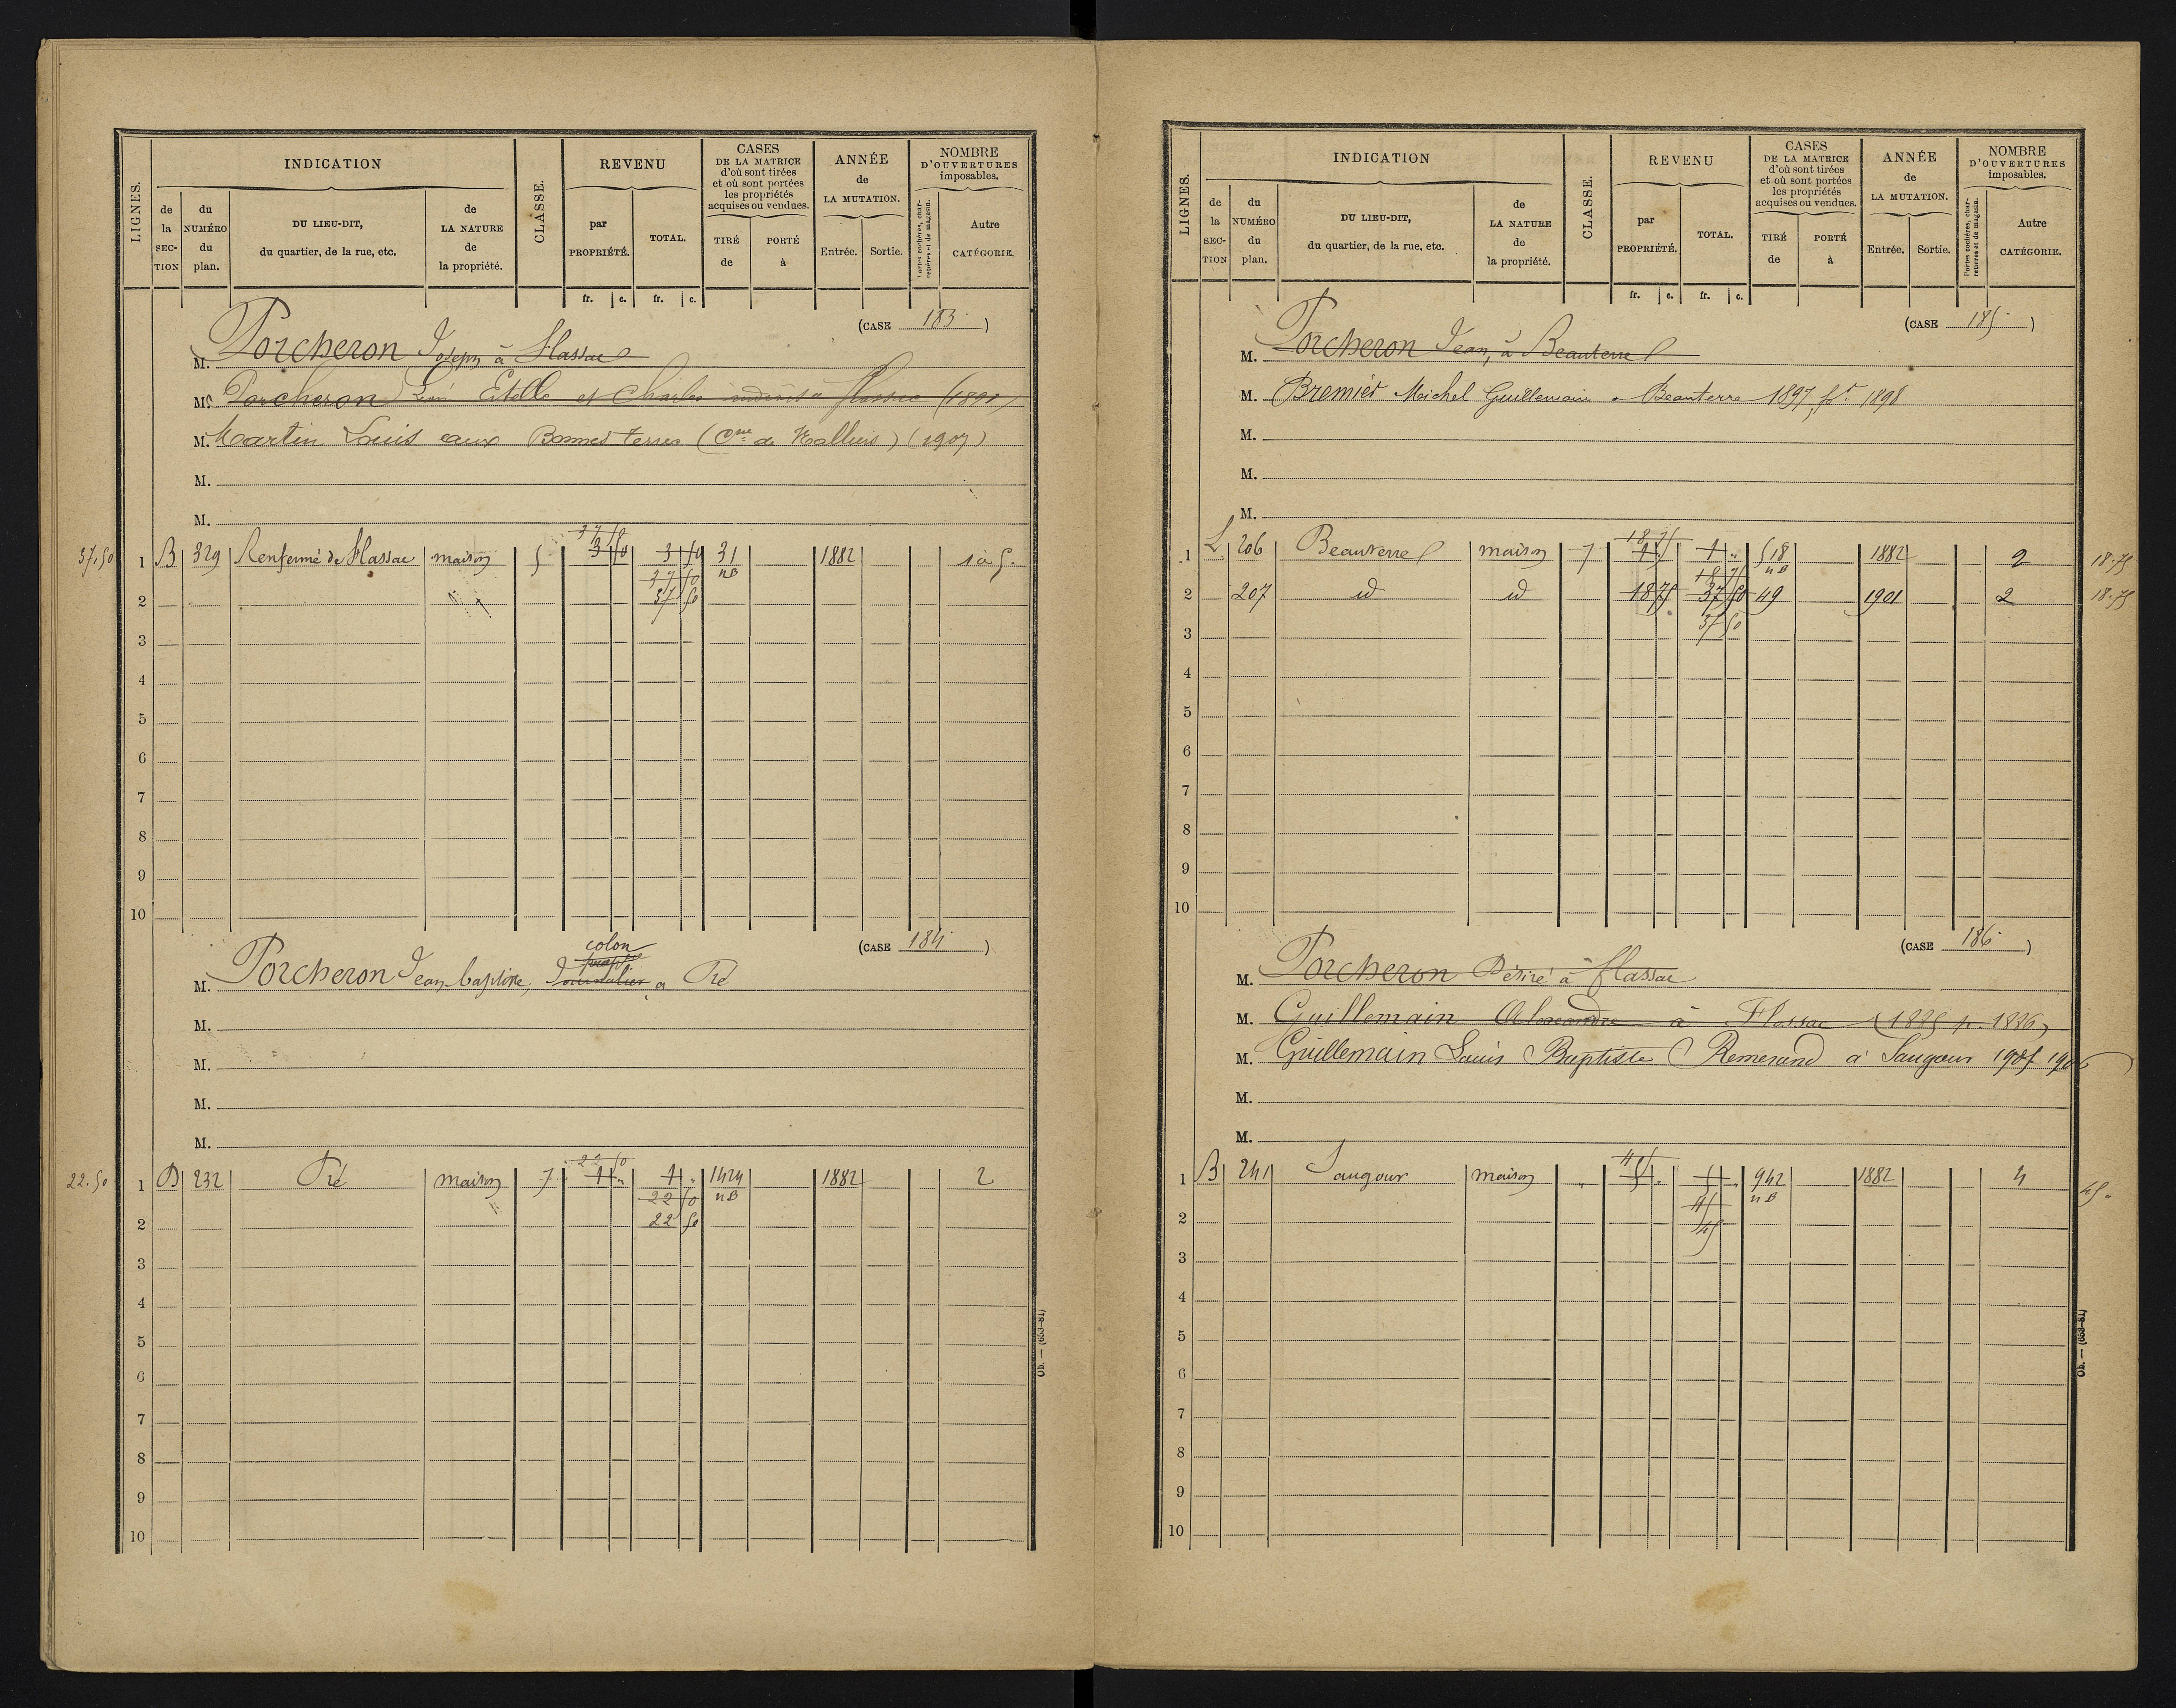 LIGNES.
INDICATION
de la SECTION
du NUMÉRO du plan.
DU LIEU-DIT, du quartier, de la rue, etc.
de LA NATURE de la propriété.
CLASSE.
REVENU
par PROPRIÉTÉ.
TOTAL.
fr. c. fr. c.
CASES DE LA MATRICE d'où sont tirées et où sont portées les propriétés acquises ou vendues.
TIRÉ de
PORTÉ à
ANNÉE de LA MUTATION.
Entrée. Sortie.
NOMBRE D'OUVERTURES imposables.
Portes cochères, charretières et de magasin.
Autre CATÉGORIE.
(CASE 183)
M. Porcheron Joseph à Flassac
M. Porcheron Léon Estelle et Charles indivis à Flassac (1891)
M. Martin Louis aux Bonnes Terres (Cne de Halluis) (1907)
M.
M.
37 50
37,50 1 B 329 Renfermé de Flassac maison 5 3 50 3 50 31 1882 1 à 5.
37 50 nB
2 37 50
3
4
5
6
7
8
9
10
(CASE 184)
colon
M. Porcheron Jean baptiste, Journalier à Pré
M.
M.
M.
M.
22 50
22.50 1 D 232 Pré maison 7 1 " 1 " 1424 1882 2
22 50 nB
2 22 50
3
4
5
6
7
8
9
10
Ob. — (663-81)
LIGNES.
INDICATION
de la SECTION
du NUMÉRO du plan.
DU LIEU-DIT, du quartier, de la rue, etc.
de LA NATURE de la propriété.
CLASSE.
REVENU
par PROPRIÉTÉ.
TOTAL.
fr. c. fr. c.
CASES DE LA MATRICE d'où sont tirées et où sont portées les propriétés acquises ou vendues.
TIRÉ de
PORTÉ à
ANNÉE de LA MUTATION.
Entrée. Sortie.
NOMBRE D'OUVERTURES imposables.
Portes cochères, charretières et de magasin.
Autre CATÉGORIE.
(CASE 185)
M. Porcheron Jean, à Beauterre
M. Bremier Michel Guillemain à Beauterre 1897 pr 1898
M.
M.
M.
18 75
1 L 206 Beauterre maison 7 1 " 1 " 518 1882 2 18.75
18 75 nB
2 207 id id 18 75 37 50 49 1901 2 18.75
37 50
3
4
5
6
7
8
9
10
(CASE 186)
M. Porcheron Désiré à Flassac
M. Guillemain Alexandre à Flassac (1885 p. 1886)
M. Guillemain Louis Baptiste (Remerand à Saugour 1905 1906)
M.
M.
45
1 B 241 Saugour maison " 942 1882 4 45 "
45 nB
2 45
3
4
5
6
7
8
9
10
Ob. — (663-81)